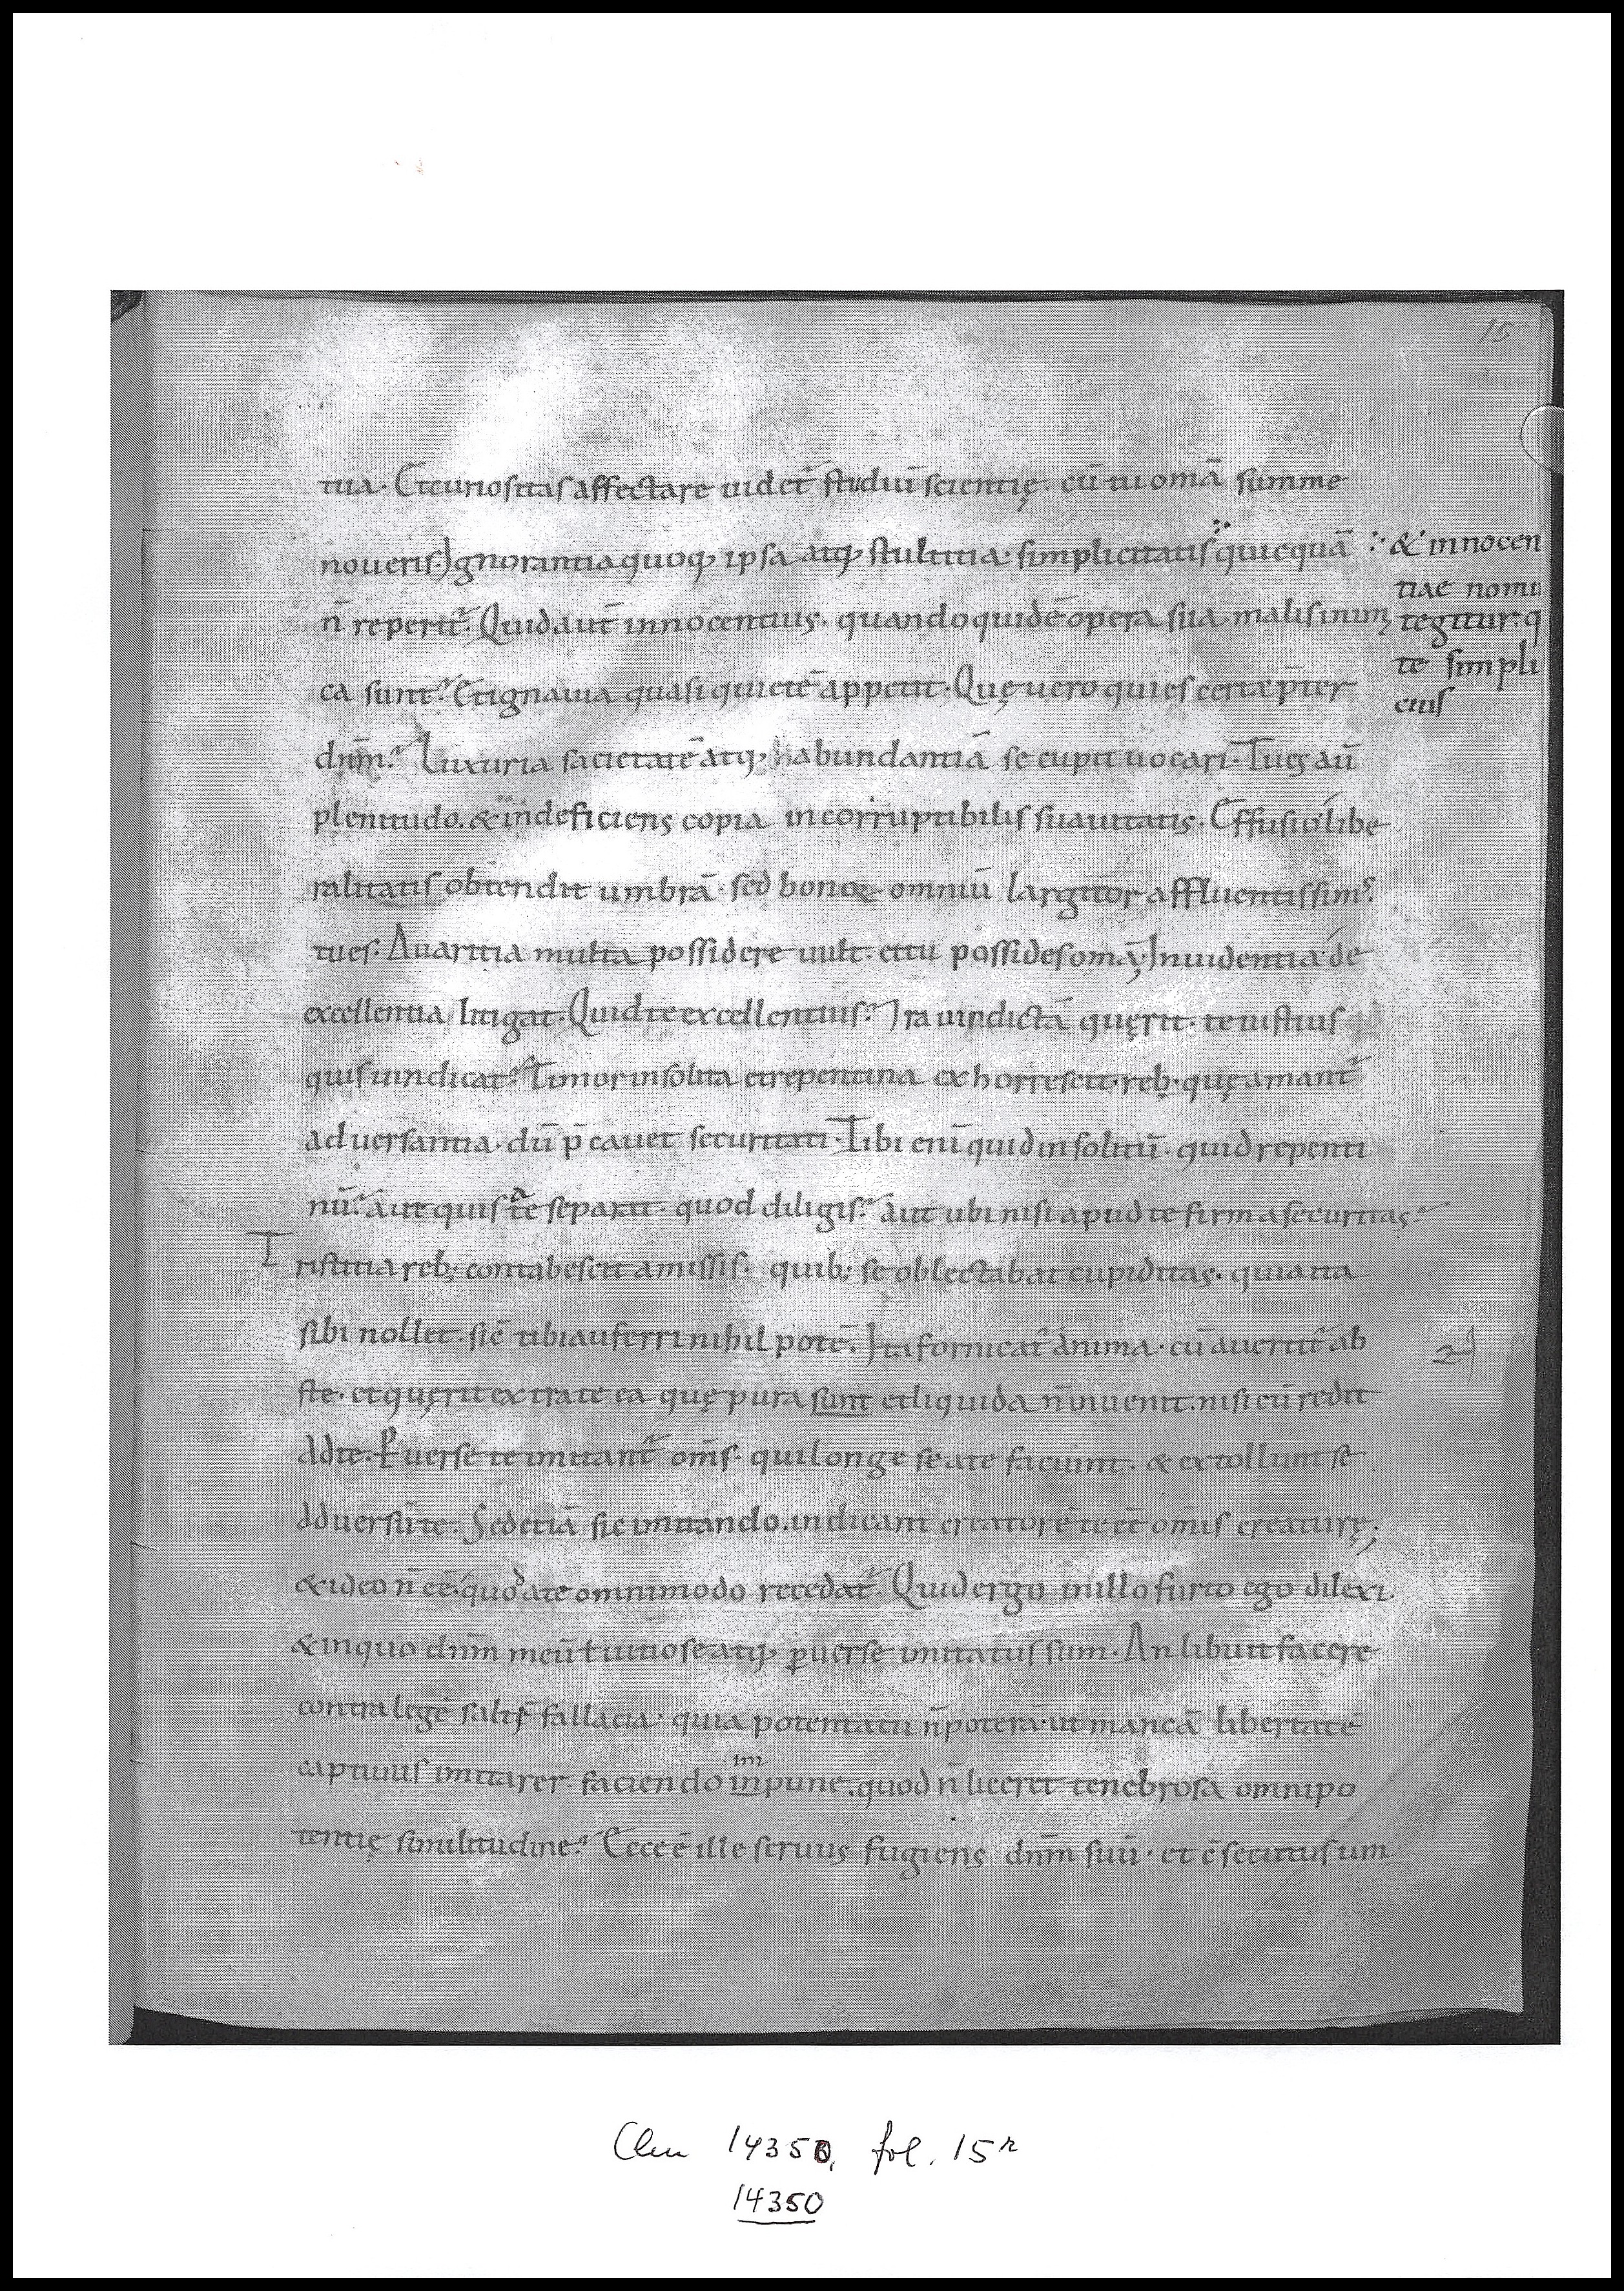 15
tua. Et curiositas affectare uidet᷑ studiū scientię. cū tu om̄a summe
noueris. Ignorantia quoq; ipsa atq; stultitia. simplicitatis quicquā
ñ reperit᷑. Quid aut̄ innocentius. quando quidē opera sua malis inimi
ca sunt? Et ignauia quasi quietē appetit. Quę uero quies certa p̄ter
dn̄m? Luxuria sacietatē atq; habundantiā se cupit uocari. Tu es aū
plenitudo. & indeficiens copia incorruptibilis suauitatis. Effusio libe
ralitatis obtendit umbrā. sed bonoꝝ omniū largitor affluentissim᾽
tu es. Auaritia multa possidere uult. et tu possides om̄a; Inuidentia de
excellentia litigat. Quid te excellentius? Ira uindictā quęrit. te iustius
quis uindicat? Timor insolita et repentina exhorrescit. reb; quę amant᷑
aduersantia. dū p̄cauet securitati. Tibi enī quid insolitū. quid repenti
nū? aut quis a te separat. quod diligis? aut ubi nisi apud te firma securitas?
Tristitia reb; contabescit amissis. quib; se oblectabat cupiditas. quia ita
sibi nollet. sic̄ tibi auferri nihil potē. Ita fornicat᷑ anima. cū auertit᷑ ab
s te. et quęrit extra te ea quę pura sunt et liquida ñ inuenit. nisi cū redit
ad te. Ꝑuerse te imitant᷑ om̄s. qui longe se a te faciunt. & extollunt se
aduersū te. Sed etiā sic imitando. indicant creatorē te eē om̄is creaturę;
& ideo ñ eē. quo a te omnimodo recedat᷑. Quid ergo in illo furto ego dilexi.
& in quo dn̄m meū ł uitiose atq; ꝑuerse imitatus sum. An libuit facere
contra legē saltē fallacia. quia potentatu ñ poterā. ut mancā libertatē
captiuus imitarer. faciendo inpune. quod ñ liceret tenebrosa omnipo
im
tentię similitudine? Ecce ē ille seruus fugiens dn̄m suū. et c̄secutus um
& innocen
tiae nomi
tegitur. q
te simpli
cius
Clm 14350, fol. 15r
14350